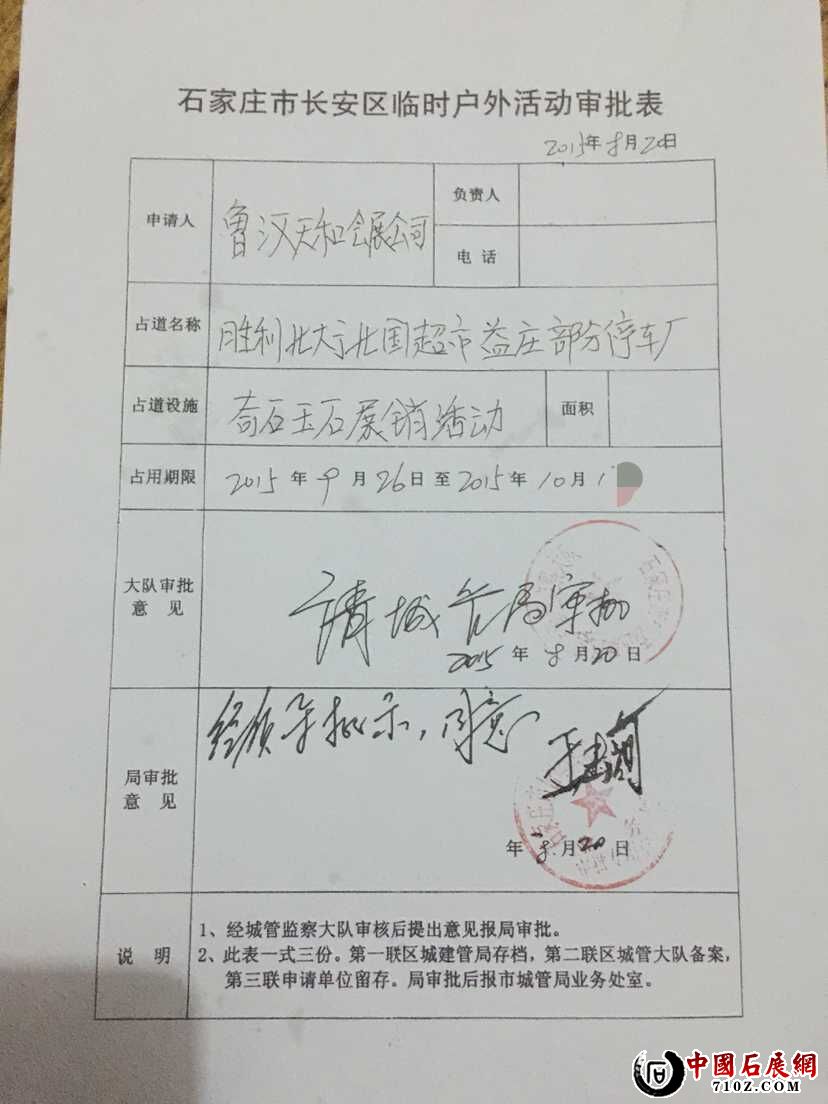 石家庄市长安区临时户外活动审批表
2015年8月20日
申请人
鲁汉天和会展公司
负责人
电 话
占道名称
胜利北大街北国超市益庄部分停车厂
占道设施
奇石玉石展销活动
面积
占用期限
2015 年 9 月 26 日 至 2015 年 10 月 1
大队审批
意 见
请城管局审批
2015 年 8 月 20 日
局审批
意 见
经领导批示，同意
年 8 月 20 日
说 明
1、经城管监察大队审核后提出意见报局审批。
2、此表一式三份。第一联区城建管局存档，第二联区城管大队备案，
第三联申请单位留存。局审批后报市城管局业务处室。
中國石展網
710Z.COM